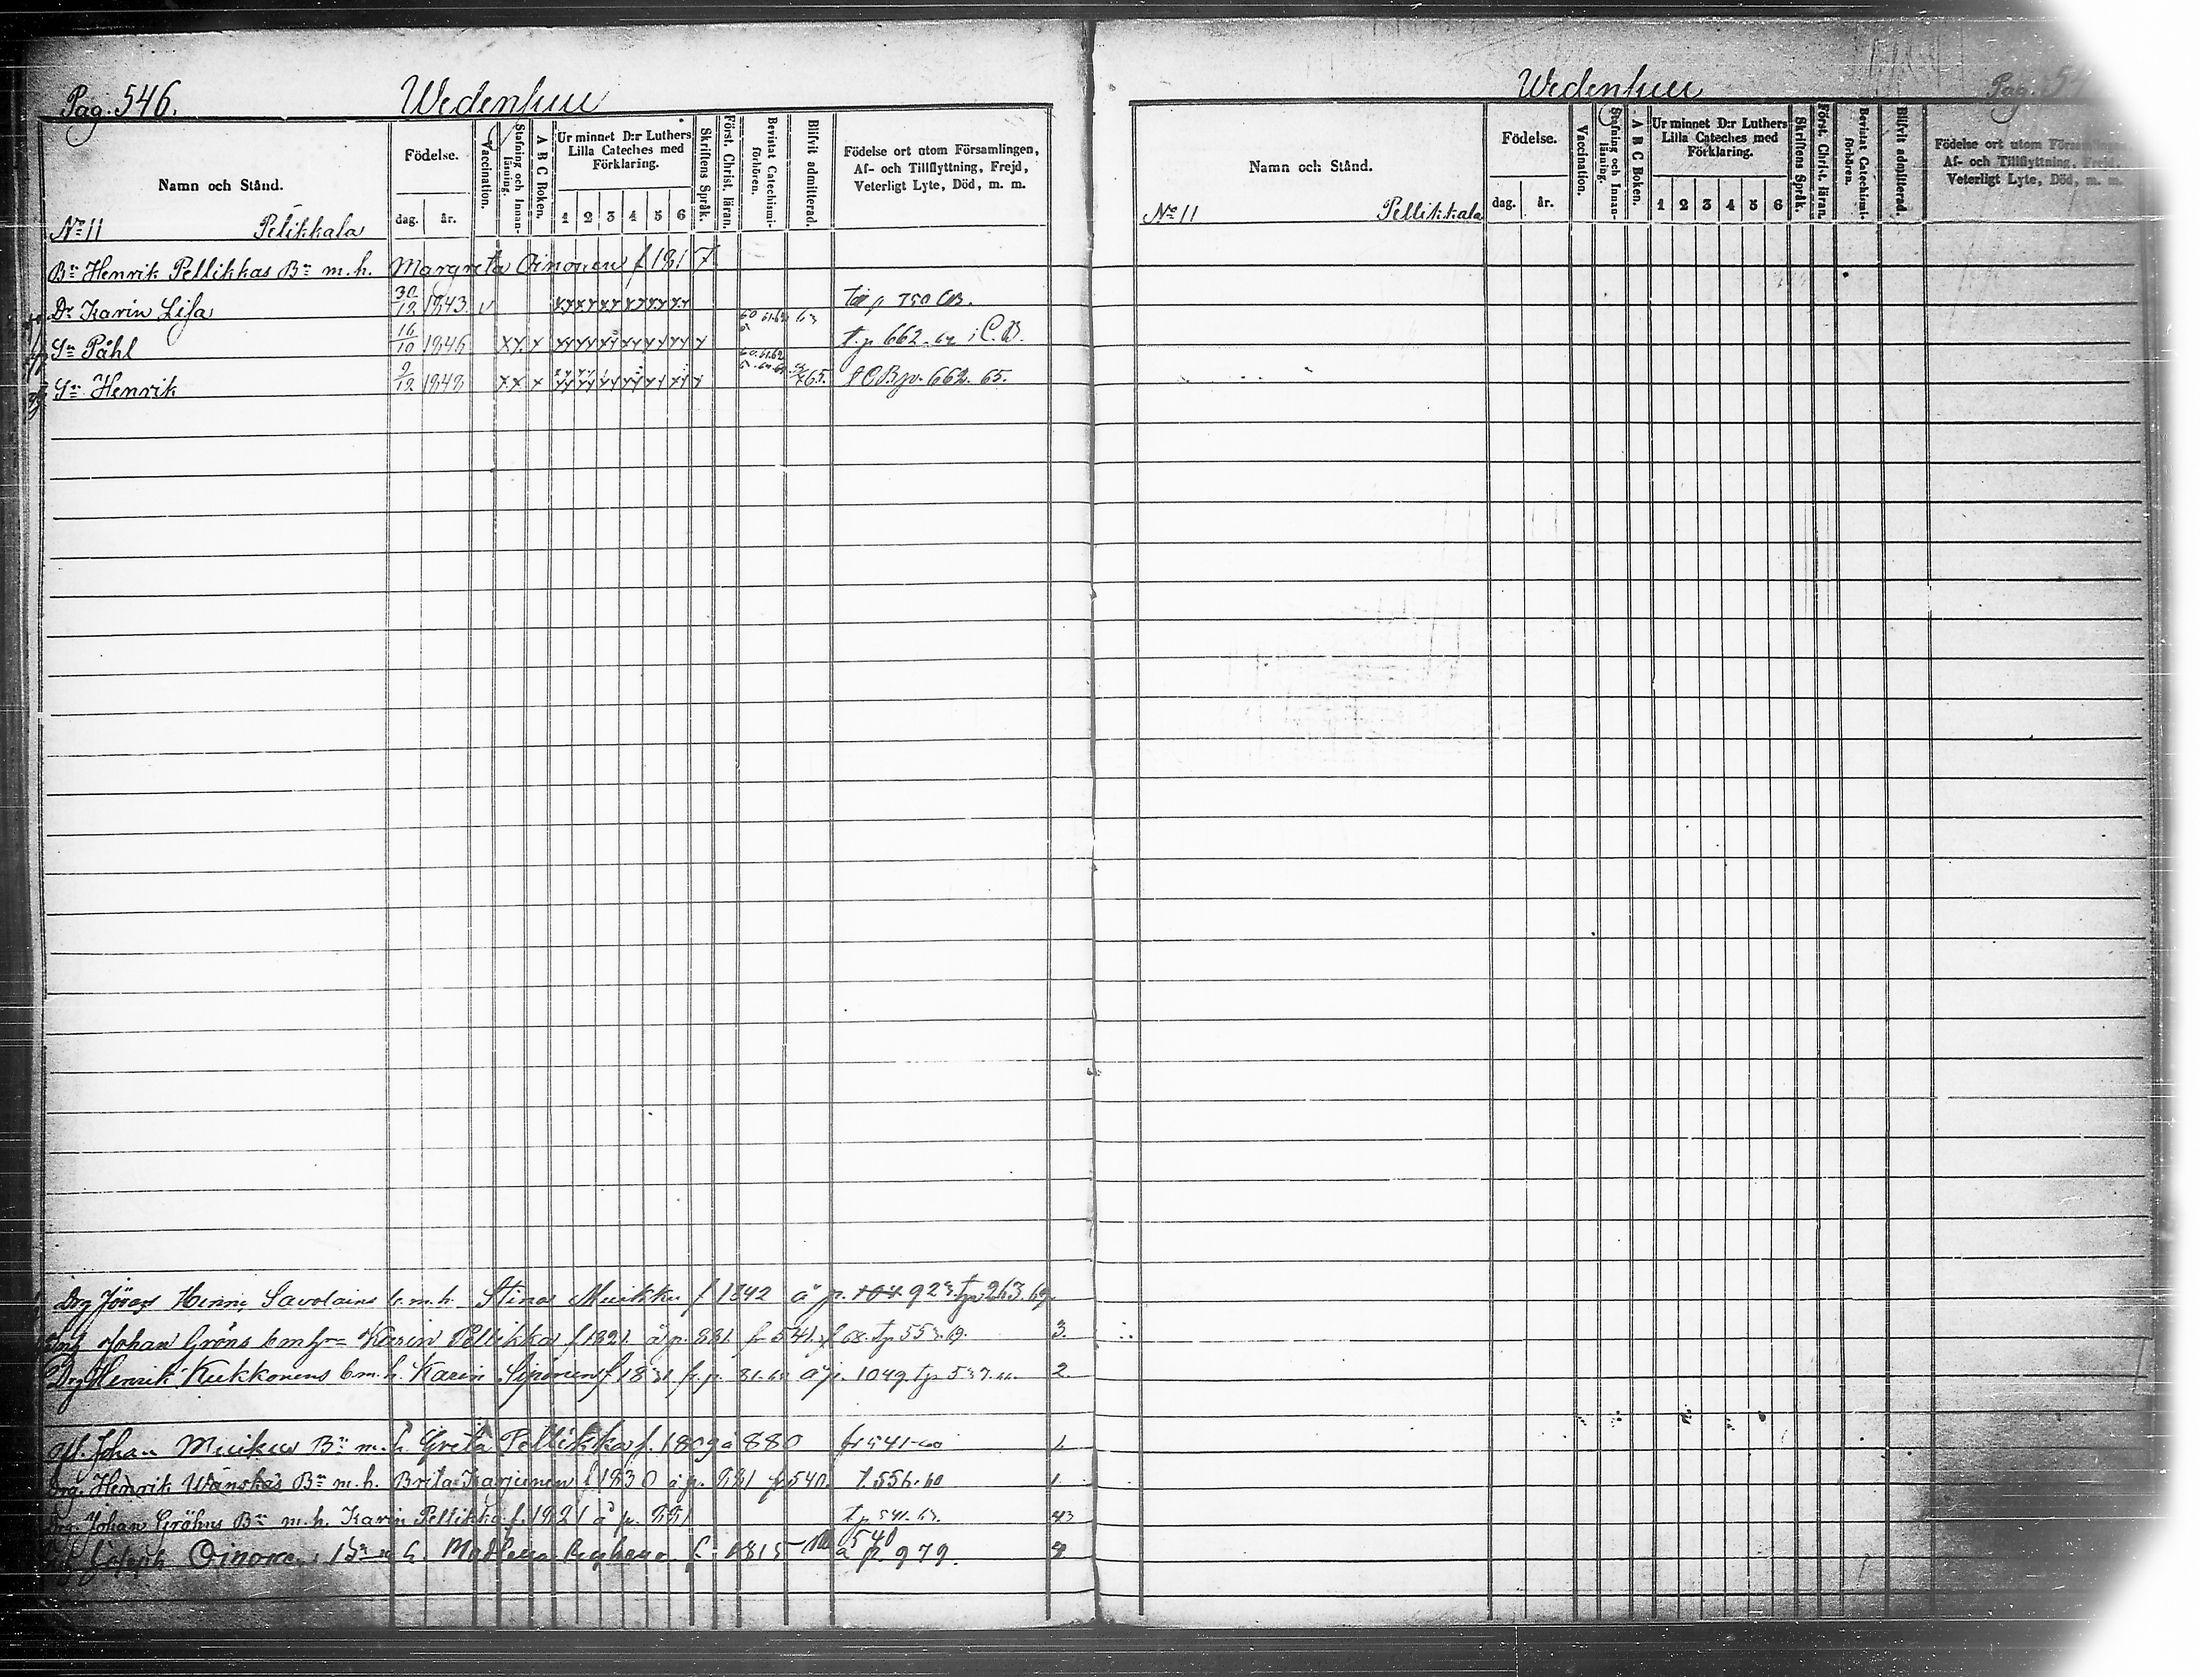 Pag. 546. Wedensuu
Namn och Stånd.
Födelse.
dag. år.
Vaccination.
Stafning och Innanläsning.
A B C Boken.
Ur minnet D:r Luthers Lilla Cateches med Förklaring.
1 2 3 4 5 6
Skriftens Språk.
Först. Christ. läran.
Bevistat Catechismiförhören.
Blifvit admitterad.
Födelse ort utom Församlingen,
Af- och Tillflyttning, Frejd,
Veterligt Lyte, Död, m. m.
No 11 Pelikkala
Bn Henrik Pellikkas Bn m. h. Margreta Oinonen f 1817
Dr Karin Lisa 30/12 1843 v
Sn Påhl 16/10 1846 t. p 662
Sn Henrik 9/12 1848 65. p. 662. 65.
Henric Savolains b. m. h. Stina Muikku f 1842 å p. 104 923. tp 263. 69.
Johan Gröns b m h Karin Pellikka f 1821. å p. 881. f 541. tp 553. 69. 3.
Drg Henrik Kukkonens b m. h. Karin Siponen f 18 å p. 1049. tp 537. 2.
Johan Muikus Bn m. h. Greta Pellikka f. 1809 å 880 541-60 1.
Drg. Henrik Wänskäs Bn m. h. Brita Karjunen f 1830 å p. 881 540. t. 556. 60 1
Drg. Johan Gröhns Bn m. h. Karin Pellikka f. 1821 å p. 881 t p 541. 63.
Joseph Oinonens f. 1815 540 å p. 979.
Wedensuu Pag. 54
Namn och Stånd.
Födelse.
dag. år.
Vaccination.
Stafning och Innanläsning.
A B C Boken.
Ur minnet D:r Luthers Lilla Cateches med Förklaring.
1 2 3 4 5 6
Skriftens Språk.
Först. Christ. läran.
Bevistat Catechismiförhören.
Blifvit admitterad.
Födelse ort utom Församlingen,
Af- och Tillflyttning, Frejd,
Veterligt Lyte, Död, m. m.
No 11 Pellikkala